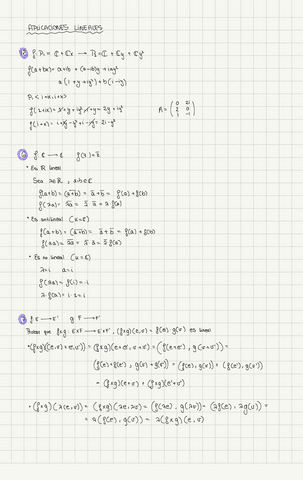 APLICACIONES LINEALES
f: P₁ = ℂ + ℂx → P₂ = ℂ + ℂy + ℂy²
f(a+bx) = a+b + (a-b)y + iay²
a(1+y+iy²) + b(1-y)
P₁ < 1+x, i+x >
A = ( 0 2i
2 0
1 -1 )
f ℂ → ℂ f(z) = z̄
• Es ℝ lineal
Sea λ∈ℝ, a,b∈ℂ
f(a+b) = (a+b) = ā + b̄ = f(a) + f(b)
f(λa) = λa = λ̄ ā = λ f(a)
• Es antilineal (K=ℂ)
f(a+b) = (a+b) = ā + b̄ = f(a) + f(b)
f(λa) = λa = λ̄ ā = λ̄ f(a)
• Es no lineal (K=ℂ)
λ=i a=i
λ f(a) = i
f E → E' g F → F'
Probar que f×g: E×F → E'×F', (f×g)(e,v) = f(e) g(v) es lineal
• (f×g)((e,v)+(e',v')) = (f×g)(e+e', v+v') = (f(e+e'), g(v+v')) =
(f(e)+f(e'), g(v)+g(v')) = (f(e), g(v)) + (f(e'), g(v'))
= (f×g)(e+v) + (f×g)(e'+v')
• (f×g)(λ(e,v)) = (f×g)(λe, λv) = (f(λe), g(λv)) = (λf(e), λg(v)) =
= λ(f(e), g(v)) = λ(f×g)(e,v)